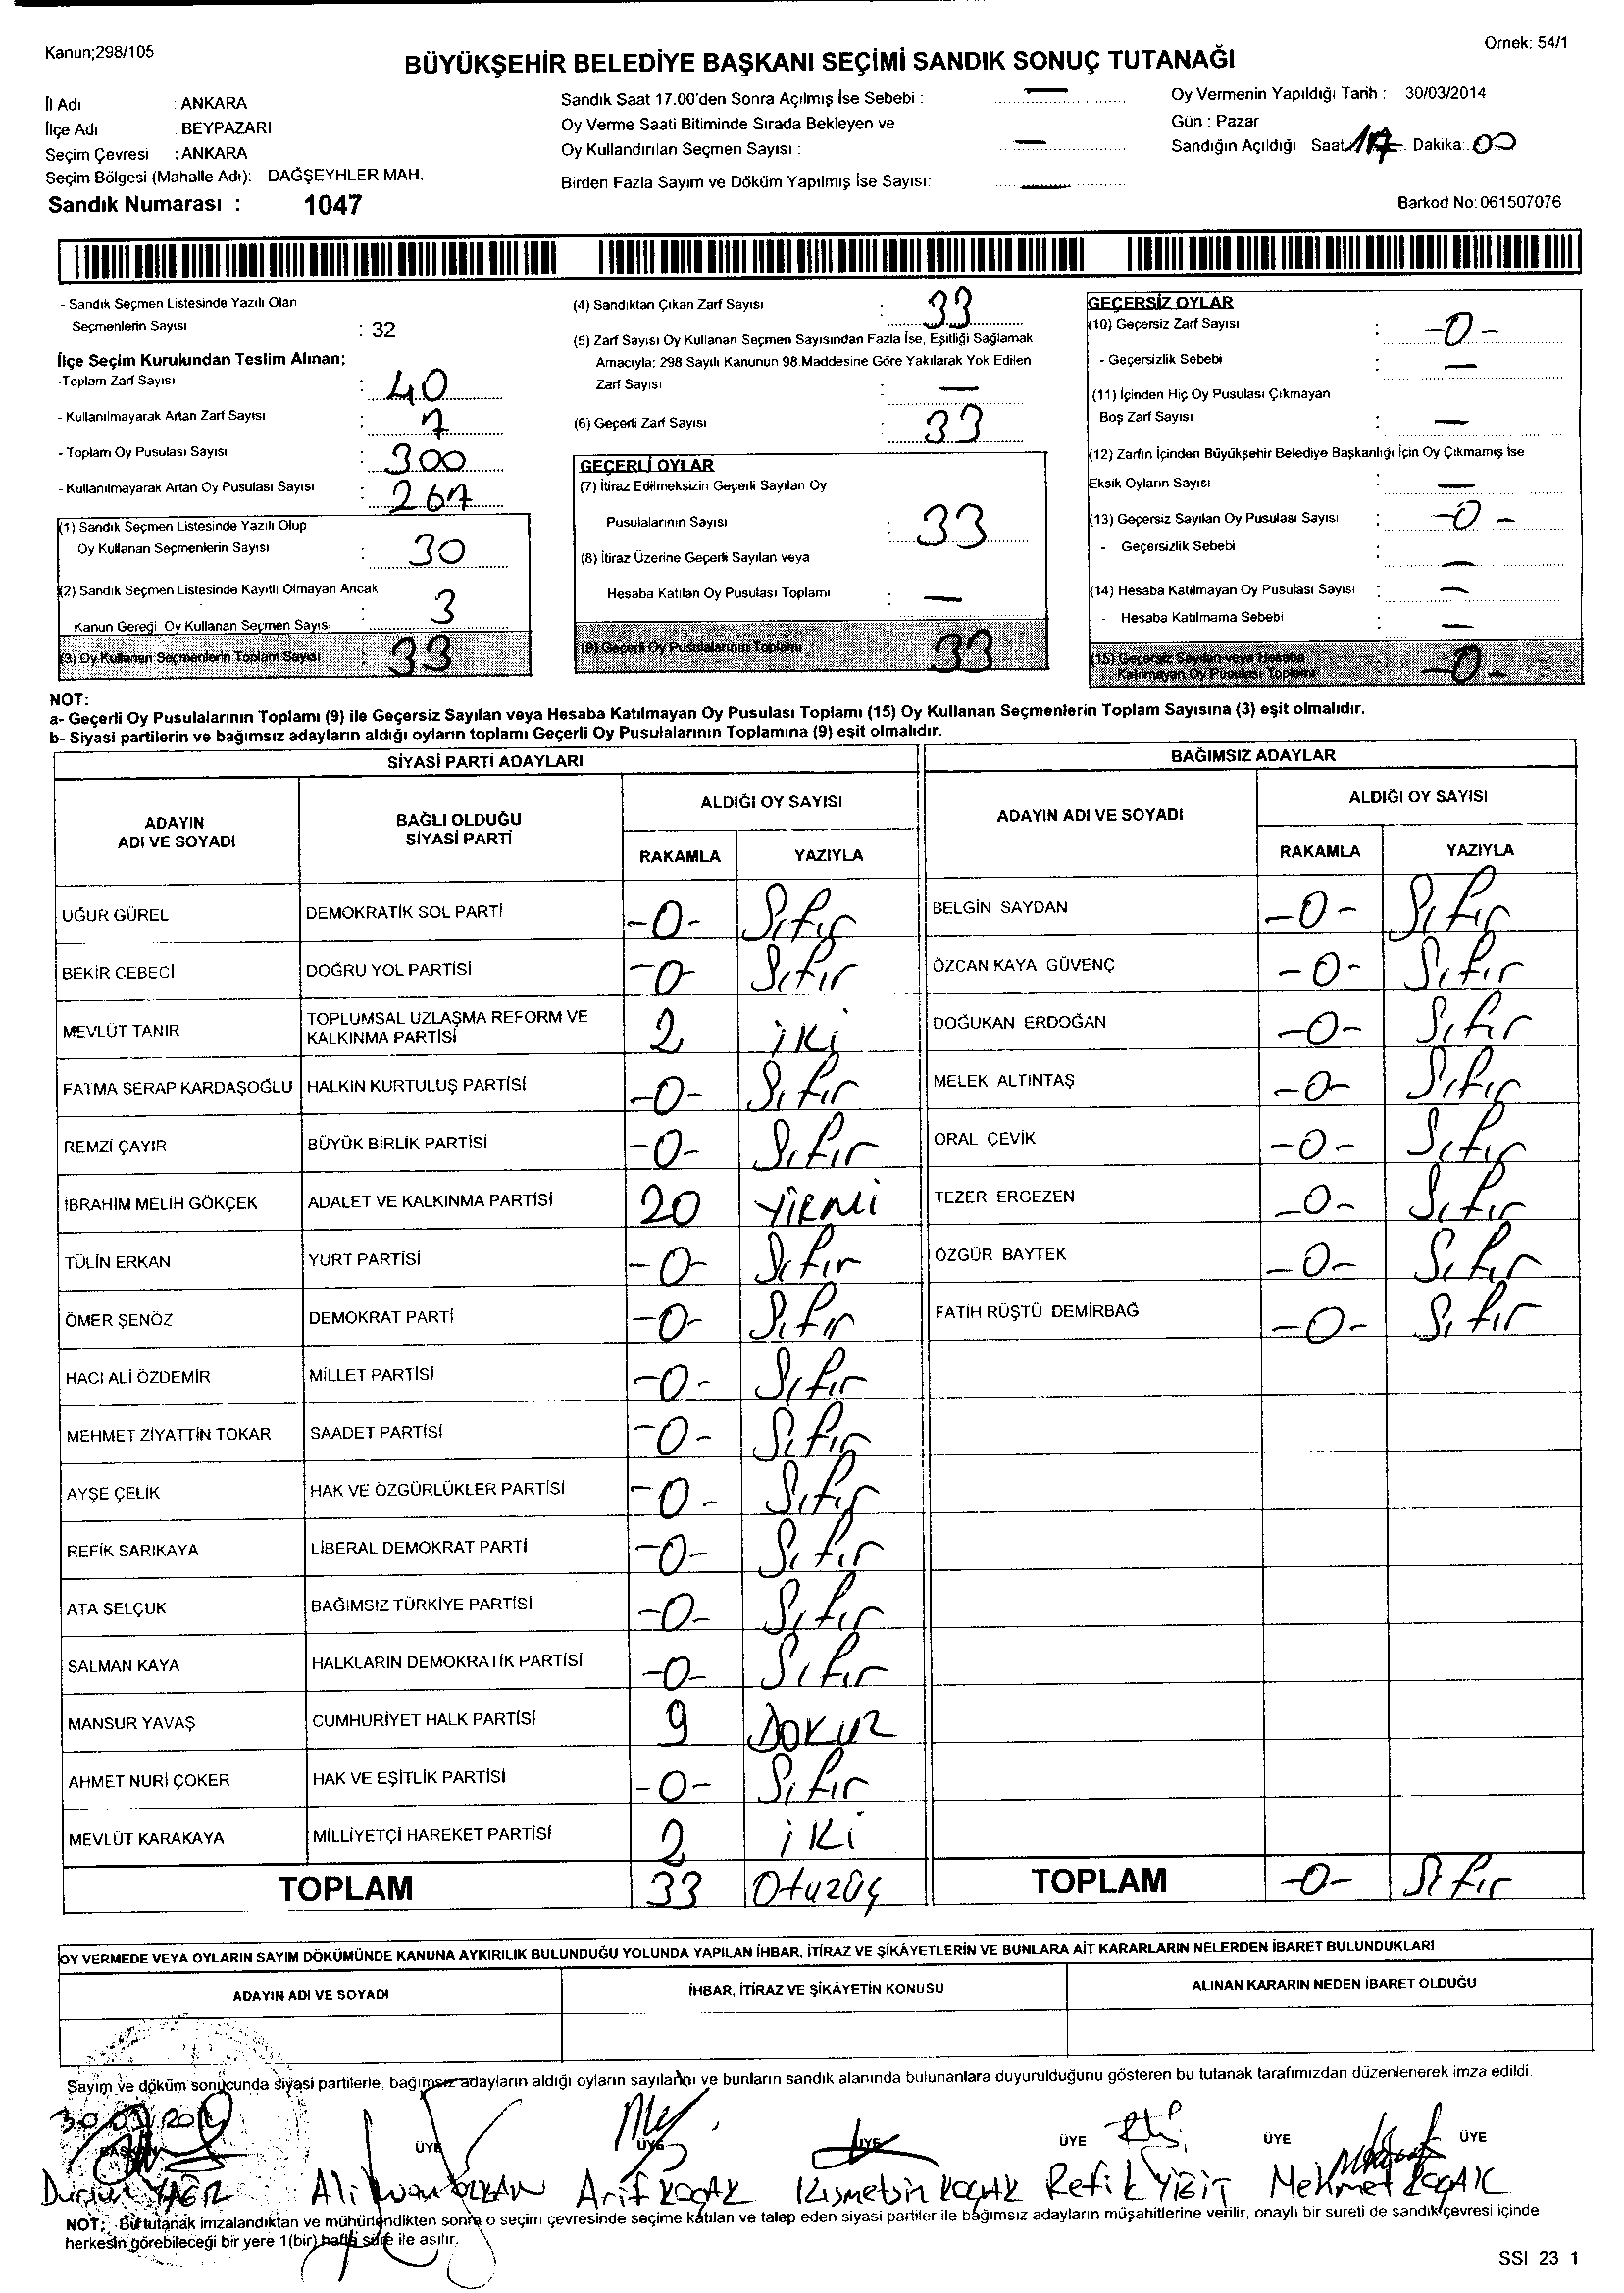 Kanun;298/105
Ornek: 54/1
BÜYÜKŞEHİR BELEDİYE BAŞKANI SEÇİMİ SANDIK SONUÇ TUTANAĞI
İl Adı : ANKARA
İlçe Adı : BEYPAZARI
Seçim Çevresi : ANKARA
Seçim Bölgesi (Mahalle Adı): DAĞŞEYHLER MAH.
Sandık Numarası : 1047
Sandık Saat 17.00'den Sonra Açılmış İse Sebebi : —
Oy Verme Saati Bitiminde Sırada Bekleyen ve
Oy Kullandırılan Seçmen Sayısı : —
Birden Fazla Sayım ve Döküm Yapılmış İse Sayısı: —
Oy Vermenin Yapıldığı Tarih : 30/03/2014
Gün : Pazar
Sandığın Açıldığı Saat 17 Dakika: 00
Barkod No: 061507076
- Sandık Seçmen Listesinde Yazılı Olan
Seçmenlerin Sayısı : 32
İlçe Seçim Kurulundan Teslim Alınan;
-Toplam Zarf Sayısı : 40
- Kullanılmayarak Artan Zarf Sayısı : 7
- Toplam Oy Pusulası Sayısı : 300
- Kullanılmayarak Artan Oy Pusulası Sayısı : 267
(1) Sandık Seçmen Listesinde Yazılı Olup
Oy Kullanan Seçmenlerin Sayısı : 30
(2) Sandık Seçmen Listesinde Kayıtlı Olmayan Ancak
Kanun Gereği Oy Kullanan Seçmen Sayısı : 3
(3) Oy Kullanan Seçmenlerin Toplam Sayısı : 33
(4) Sandıktan Çıkan Zarf Sayısı : 33
(5) Zarf Sayısı Oy Kullanan Seçmen Sayısından Fazla İse, Eşitliği Sağlamak
Amacıyla; 298 Sayılı Kanunun 98.Maddesine Göre Yakılarak Yok Edilen
Zarf Sayısı : —
(6) Geçerli Zarf Sayısı : 33
GEÇERLİ OYLAR
(7) İtiraz Edilmeksizin Geçerli Sayılan Oy
Pusulalarının Sayısı : 33
(8) İtiraz Üzerine Geçerli Sayılan veya
Hesaba Katılan Oy Pusulası Toplamı : —
(9) Geçerli Oy Pusulalarının Toplamı 33
GEÇERSİZ OYLAR
(10) Geçersiz Zarf Sayısı : -0-
- Geçersizlik Sebebi : —
(11) İçinden Hiç Oy Pusulası Çıkmayan
Boş Zarf Sayısı : —
(12) Zarfın İçinden Büyükşehir Belediye Başkanlığı İçin Oy Çıkmamış İse
Eksik Oyların Sayısı : —
(13) Geçersiz Sayılan Oy Pusulası Sayısı : -0-
- Geçersizlik Sebebi : —
(14) Hesaba Katılmayan Oy Pusulası Sayısı : —
- Hesaba Katılmama Sebebi : —
(15) Geçersiz Sayılan veya Hesaba
Katılmayan Oy Pusulası Toplamı -0-
NOT:
a- Geçerli Oy Pusulalarının Toplamı (9) ile Geçersiz Sayılan veya Hesaba Katılmayan Oy Pusulası Toplamı (15) Oy Kullanan Seçmenlerin Toplam Sayısına (3) eşit olmalıdır.
b- Siyasi partilerin ve bağımsız adayların aldığı oyların toplamı Geçerli Oy Pusulalarının Toplamına (9) eşit olmalıdır.
SİYASİ PARTİ ADAYLARI
ADAYIN ADI VE SOYADI
BAĞLI OLDUĞU SİYASİ PARTİ
ALDIĞI OY SAYISI
RAKAMLA YAZIYLA
UĞUR GÜREL DEMOKRATİK SOL PARTİ -0- Sıfır
BEKİR CEBECİ DOĞRU YOL PARTİSİ -0- Sıfır
MEVLÜT TANIR TOPLUMSAL UZLAŞMA REFORM VE KALKINMA PARTİSİ 2 iki
FATMA SERAP KARDAŞOĞLU HALKIN KURTULUŞ PARTİSİ -0- Sıfır
REMZİ ÇAYIR BÜYÜK BİRLİK PARTİSİ -0- Sıfır
İBRAHİM MELİH GÖKÇEK ADALET VE KALKINMA PARTİSİ 20 YİRMİ
TÜLİN ERKAN YURT PARTİSİ -0- Sıfır
ÖMER ŞENÖZ DEMOKRAT PARTİ -0- Sıfır
HACI ALİ ÖZDEMİR MİLLET PARTİSİ -0- Sıfır
MEHMET ZİYATTİN TOKAR SAADET PARTİSİ -0- Sıfır
AYŞE ÇELİK HAK VE ÖZGÜRLÜKLER PARTİSİ -0- Sıfır
REFİK SARIKAYA LİBERAL DEMOKRAT PARTİ -0- Sıfır
ATA SELÇUK BAĞIMSIZ TÜRKİYE PARTİSİ -0- Sıfır
SALMAN KAYA HALKLARIN DEMOKRATİK PARTİSİ -0- Sıfır
MANSUR YAVAŞ CUMHURİYET HALK PARTİSİ 9 DOKUZ
AHMET NURİ ÇOKER HAK VE EŞİTLİK PARTİSİ -0- Sıfır
MEVLÜT KARAKAYA MİLLİYETÇİ HAREKET PARTİSİ 2 iki
TOPLAM 33 Otuzüç
BAĞIMSIZ ADAYLAR
ADAYIN ADI VE SOYADI
ALDIĞI OY SAYISI
RAKAMLA YAZIYLA
BELGİN SAYDAN -0- Sıfır
ÖZCAN KAYA GÜVENÇ -0- Sıfır
DOĞUKAN ERDOĞAN -0- Sıfır
MELEK ALTINTAŞ -0- Sıfır
ORAL ÇEVİK -0- Sıfır
TEZER ERGEZEN -0- Sıfır
ÖZGÜR BAYTEK -0- Sıfır
FATİH RÜŞTÜ DEMİRBAĞ -0- Sıfır
TOPLAM -0- Sıfır
OY VERMEDE VEYA OYLARIN SAYIM DÖKÜMÜNDE KANUNA AYKIRILIK BULUNDUĞU YOLUNDA YAPILAN İHBAR, İTİRAZ VE ŞİKÂYETLERİN VE BUNLARA AİT KARARLARIN NELERDEN İBARET BULUNDUKLARI
ADAYIN ADI VE SOYADI İHBAR, İTİRAZ VE ŞİKÂYETİN KONUSU ALINAN KARARIN NEDEN İBARET OLDUĞU
Sayım ve döküm sonucunda siyasi partilerle, bağımsız adayların aldığı oyların sayılarını ve bunların sandık alanında bulunanlara duyurulduğunu gösteren bu tutanak tarafımızdan düzenlenerek imza edildi.
BAŞKAN ÜYE ÜYE ÜYE ÜYE ÜYE ÜYE
Ali Arif KOÇAK Kısmetsin KOÇAK Refik YİĞİT Mehmet KOÇAK
NOT: Bu tutanak imzalandıktan ve mühürlendikten sonra o seçim çevresinde seçime katılan ve talep eden siyasi partiler ile bağımsız adayların müşahitlerine verilir, onaylı bir sureti de sandık çevresi içinde
herkesin görebileceği bir yere 1(bir) hafta süre ile asılır.
SSI 23 1